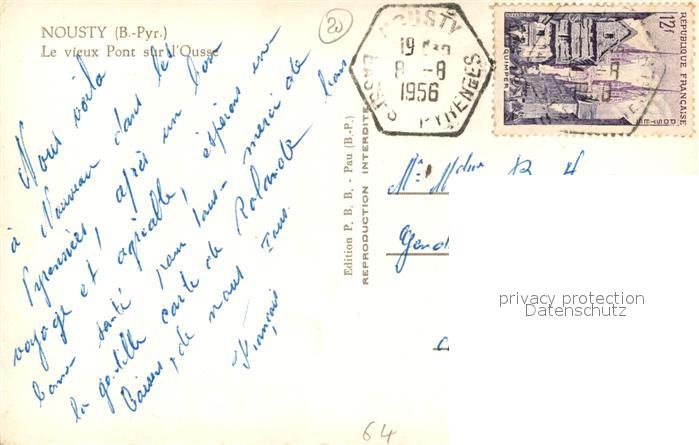 NOUSTY (B.-Pyr.)
Le vieux Pont sur l'Ousse
20
Nous voilà
à Nouveau dans les
Pyrennées, après un bon
voyage et agréable, espérons en
bonne santé pour tous - merci de
la gentille carte de Rolande
Baisers, de nous Tous
François
Edition P. B. B. - Pau (B.-P.)
REPRODUCTION INTERDITE
NOUSTY
19
8 -8
1956
BASSES PYRENEES
12f
REPUBLIQUE FRANÇAISE
POSTES
QUIMPER
privacy protection
Datenschutz
64